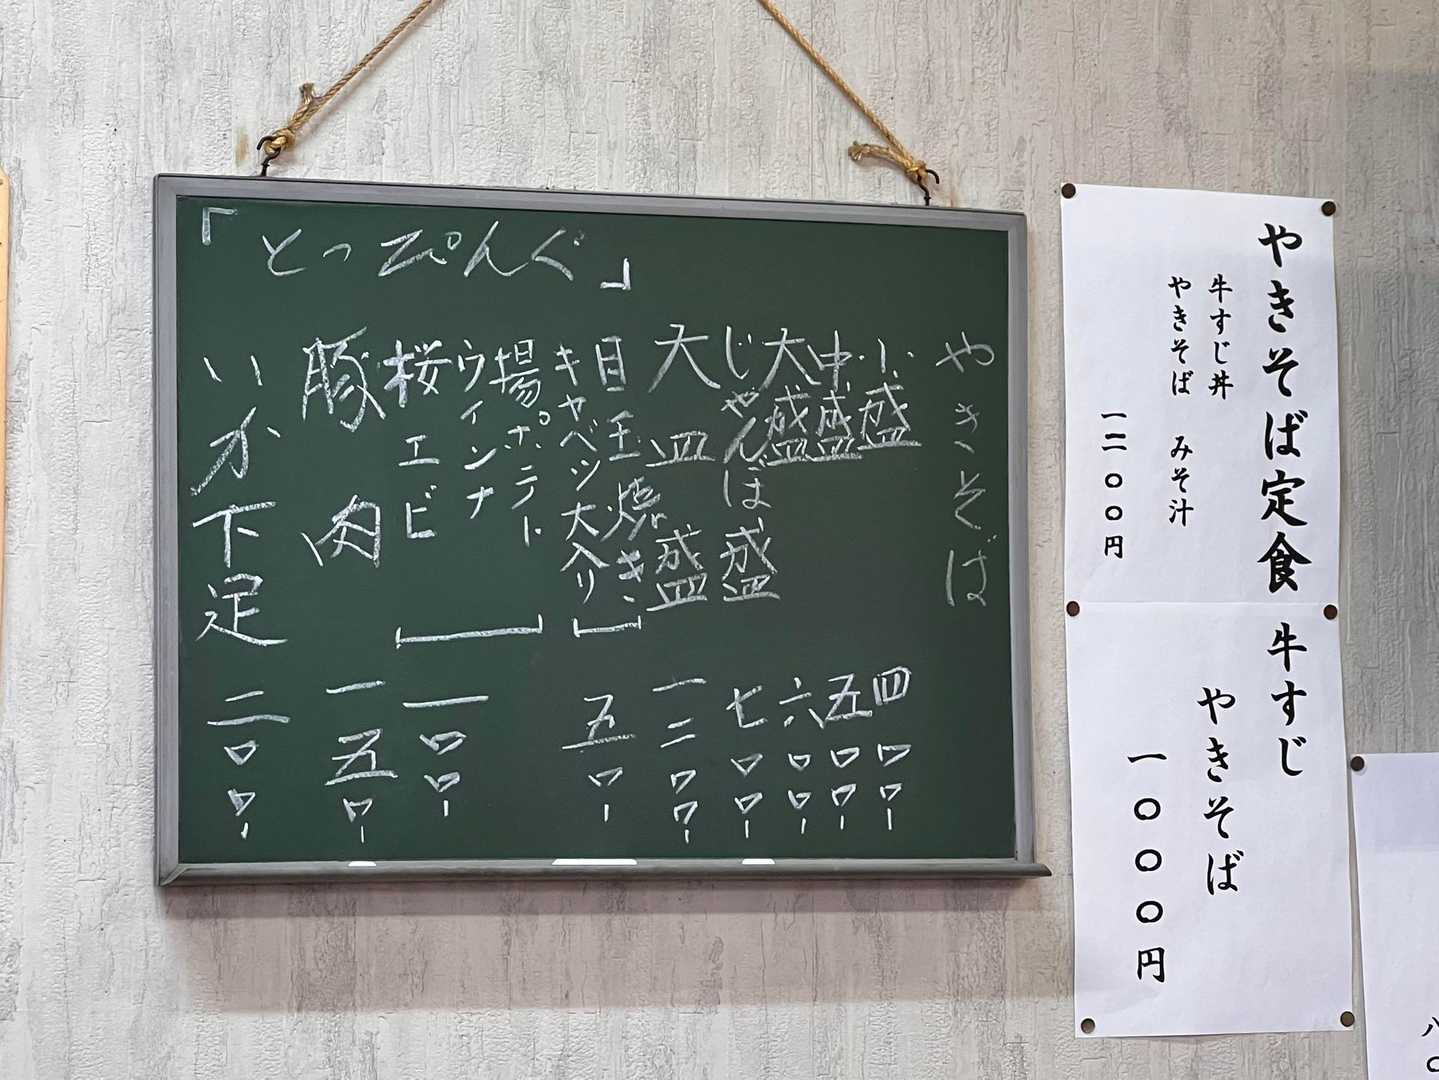 「とっぴんぐ」
やきそば
小盛 四〇〇ー
中盛 五〇〇ー
大盛 六〇〇ー
じゃんぼ盛 七〇〇ー
大皿盛 一二〇〇ー
目玉焼き
キャベツ大入り 五〇ー
揚ポテト
ウィンナ
桜エビ 一〇〇ー
豚肉 一五〇ー
いか下足 二〇〇ー
やきそば定食
牛すじ丼
やきそば みそ汁
一二〇〇円
牛すじ
やきそば
一〇〇〇円